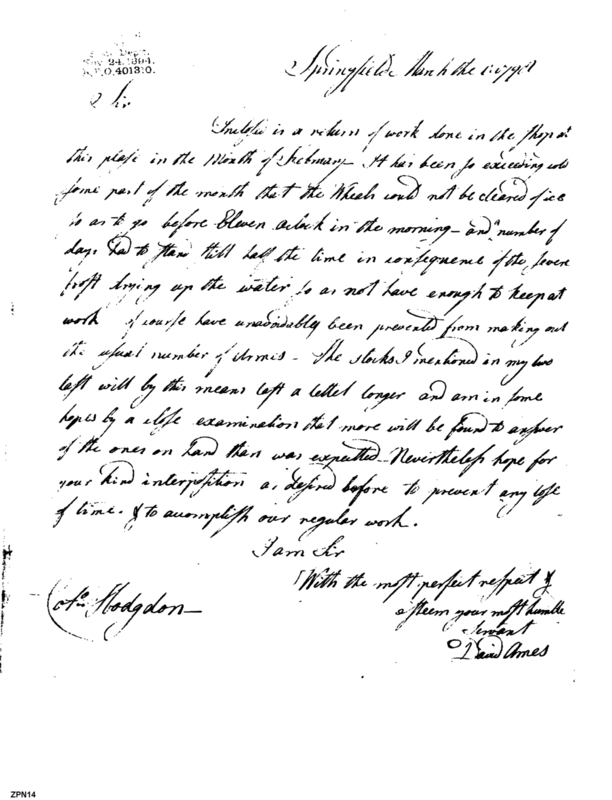 Dept.
Nov 24. 1894.
R.P.O. 401310.
Springfield March the 1. 179
Sir
Inclosd is a return of work done in the Shop at
this plase in the Month of February. It has been so exceeding cold
some part of the month that the Wheals could not be cleared of ice
so as to go before Eleven oclock in the morning – and a number of
days had to stand still half the time in consequence of the severe
frost drying up the water so as not have enough to keep at
work of course have unavoidably been prevented from making out
the usual number of Armes – The stocks I mentioned in my two
last will by this means last a littel longer and am in some
hopes by a close examination that more will be found to answer
of the ones on hand than was expected – Nevertheless hope for
your kind interposition as desired before to prevent any lose
of time. & to acomplish our regular work.
I am Sir
With the most perfect respect &
esteem your most humble
Servant
David Ames
Hodgdon –
ZPN14